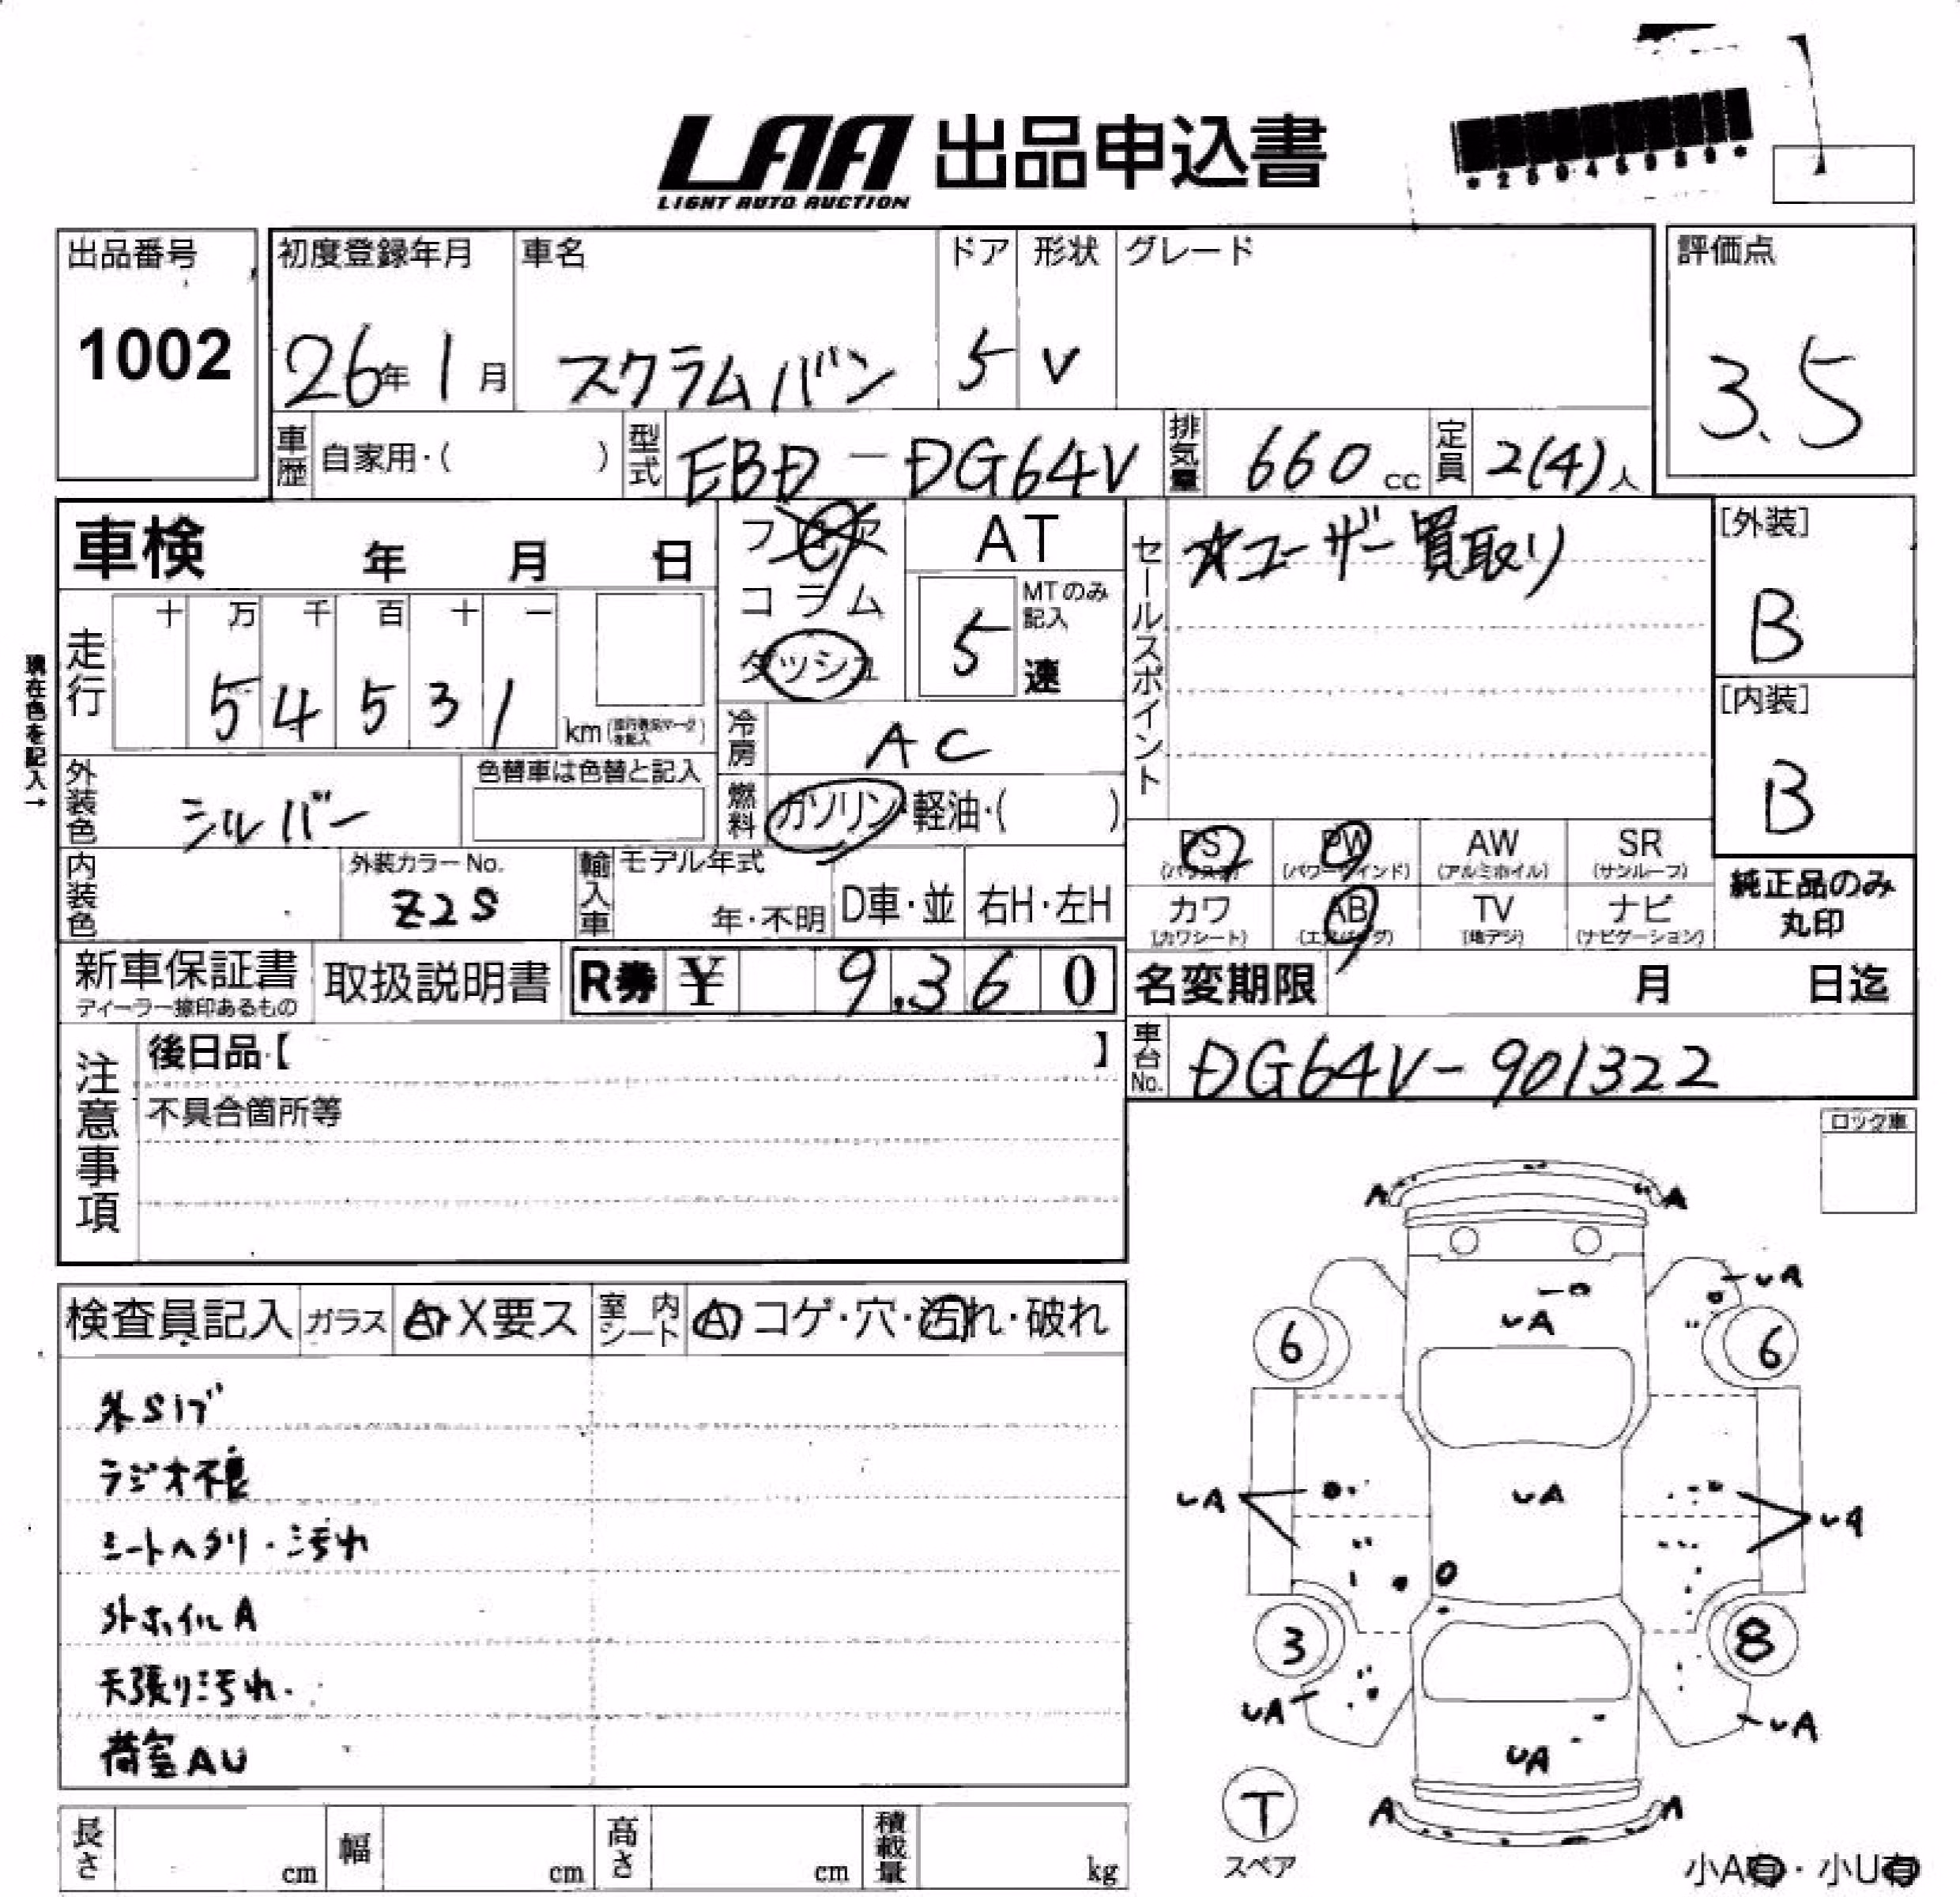 LAA 出品申込書
LIGHT AUTO AUCTION
出品番号
1002
初度登録年月
26年 1月
車名
スクラムバン
ドア
5
形状
V
グレード
評価点
3.5
車歴
自家用・( )
型式
EBD-DG64V
排気量
660 cc
定員
2(4)人
車検 年 月 日
フロア
コラム
ダッシュ
AT
MTのみ記入
5速
セールスポイント
☆ユーザー買取り
[外装]
B
[内装]
B
現在色を記入→
走行
十 万 千 百 十 一
5 4 5 3 1
km
冷房
AC
外装色
シルバー
色替車は色替と記入
燃料
ガソリン・軽油・( )
内装色
外装カラーNo.
Z2S
輸入車
モデル年式
年・不明
D車・並
右H・左H
PS
PW
(パワーウインド)
AW
(アルミホイル)
SR
(サンルーフ)
カワ
(カワシート)
AB
(エアバッグ)
TV
(地デジ)
ナビ
(ナビゲーション)
純正品のみ
丸印
新車保証書
ディーラー捺印あるもの
取扱説明書
R券 ¥ 9,360
名変期限 月 日迄
車台No.
DG64V-901322
注意事項
後日品【 】
不具合箇所等
ロック車
検査員記入
ガラス
A・X要ス
室内シート
A コゲ・穴・汚れ・破れ
ラジオ不良
シートヘタリ・汚れ
外ホイルA
天張り汚れ.
荷室AU
A A
UA
UA
6 6
UA
UA
UA
3 8
UA
UA
UA
A A
T
スペア
長さ cm
幅 cm
高さ cm
積載量 kg
小A有・小U有